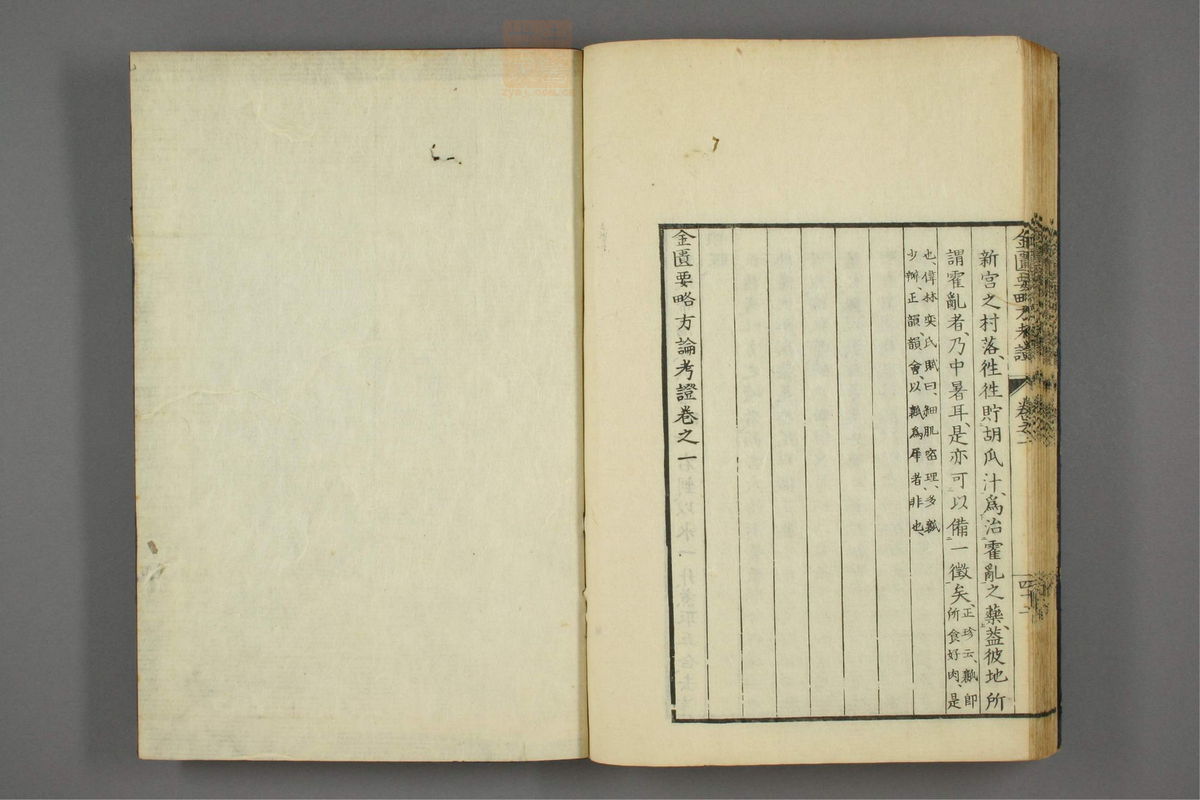 金匱要略方考證
卷之一
四十二
新宮之村落、徃徃貯胡瓜汁、爲治霍亂之藥、葢彼地所
謂霍亂者、乃中暑耳、是亦可以備一徵矣、正珍云、瓤即
所食好肉、是
也、偉林奕氏賦曰、細肌密理、多瓤
少瓣、正韻、韻會、以瓤爲犀者非也、
金匱要略方論考證卷之一